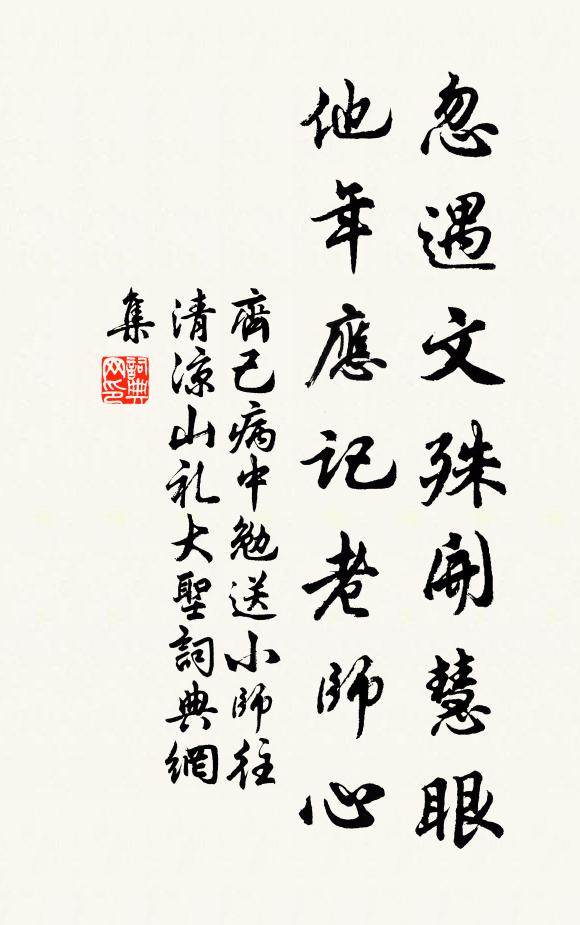 忽遇文殊開慧眼
他年應記老師心
齊己病中勉送小師往
清涼山礼大聖詞典網
集
詞典
网印